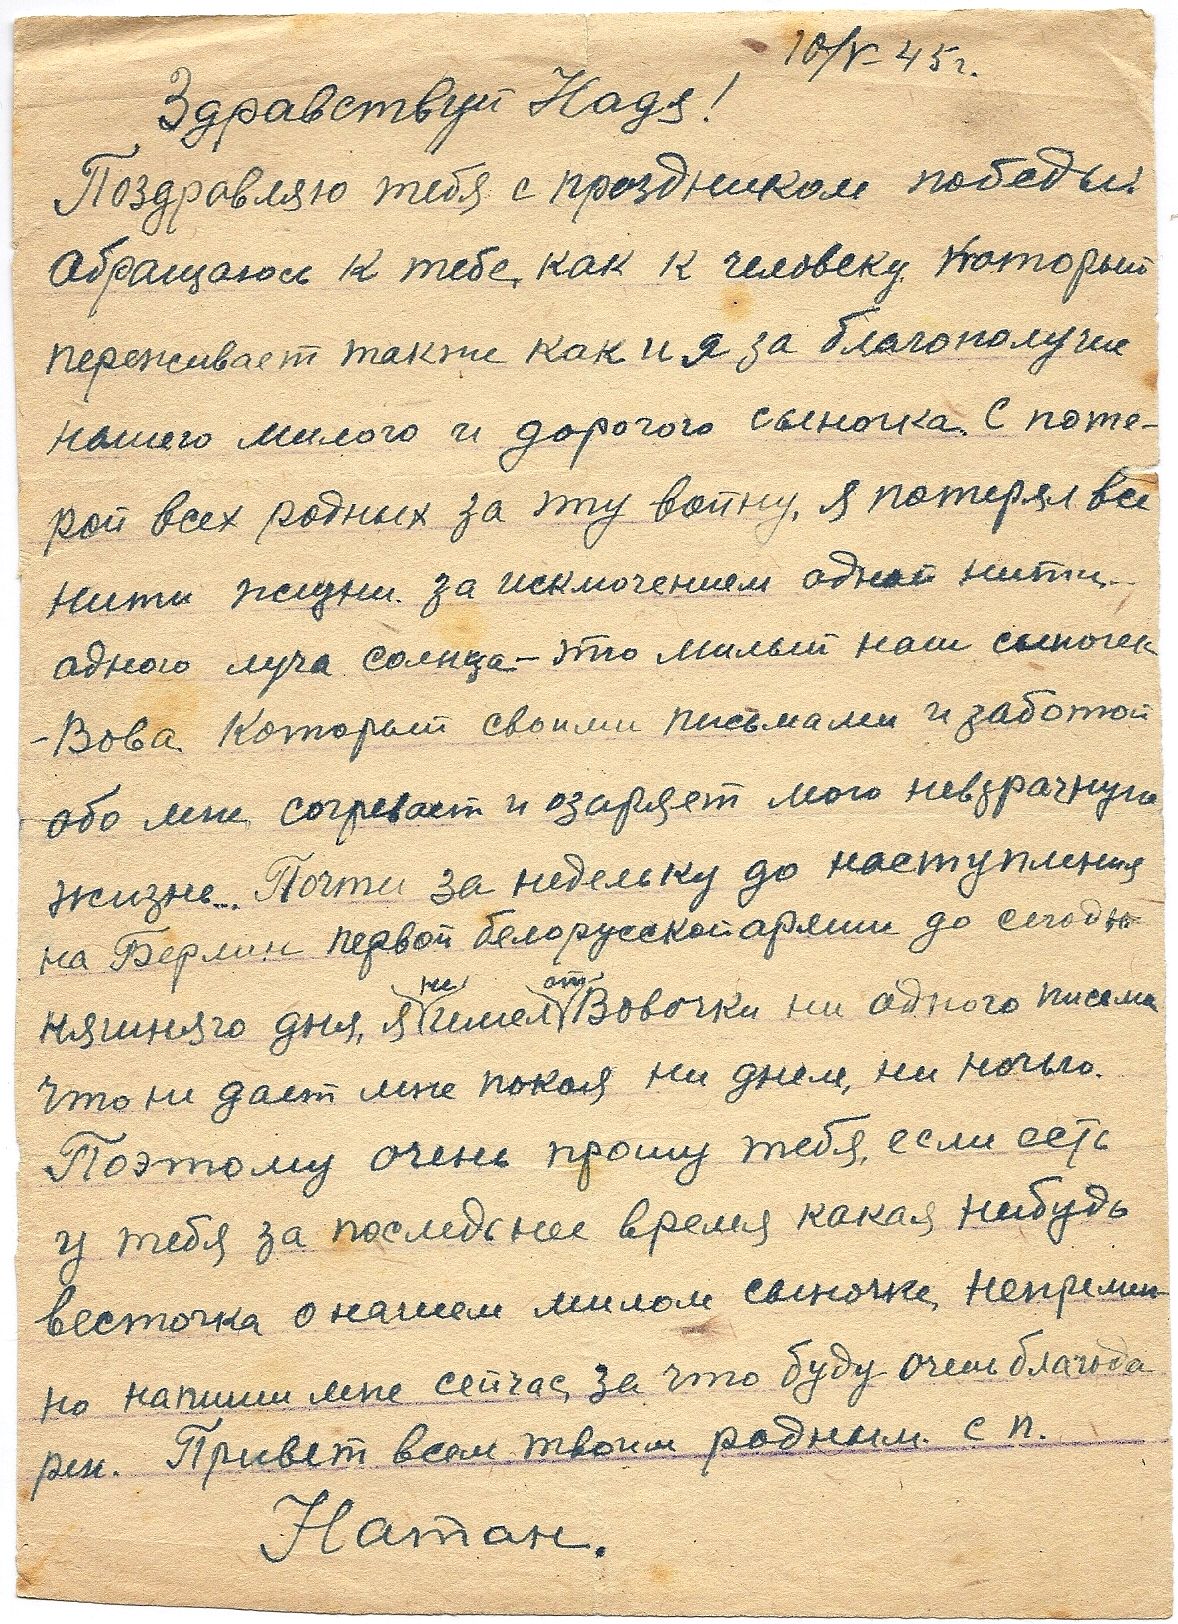 10/V-45г.
Здравствуй Надя!
Поздравляю тебя с праздником победы!
Обращаюсь к тебе, как к человеку который
переживает также как и я за благополучие
нашего милого и дорогого сыночка. С поте-
рой всех родных за эту войну, я потерял все
нити жизни за исключением одной нити,-
одного луча солнца - это милый наш сыночек
- Вова. Который своими письмами и заботой
обо мне, согревает и озаряет мою невзрачную
жизнь... Почти за недельку до наступления
на Берлин первой белорусской армии до сегодн-
няшняго дня, я не имел от Вовочки ни одного писема
что не дает мне покоя ни днем, ни ночью.
Поэтому очень прошу тебя, если есть
у тебя за последнее время какая нибудь
весточка о нашем милом сыночке, непремен-
но напиши мне сейчас, за что буду очень благода
рен. Привет всем твоим родным. С п.
Натан.